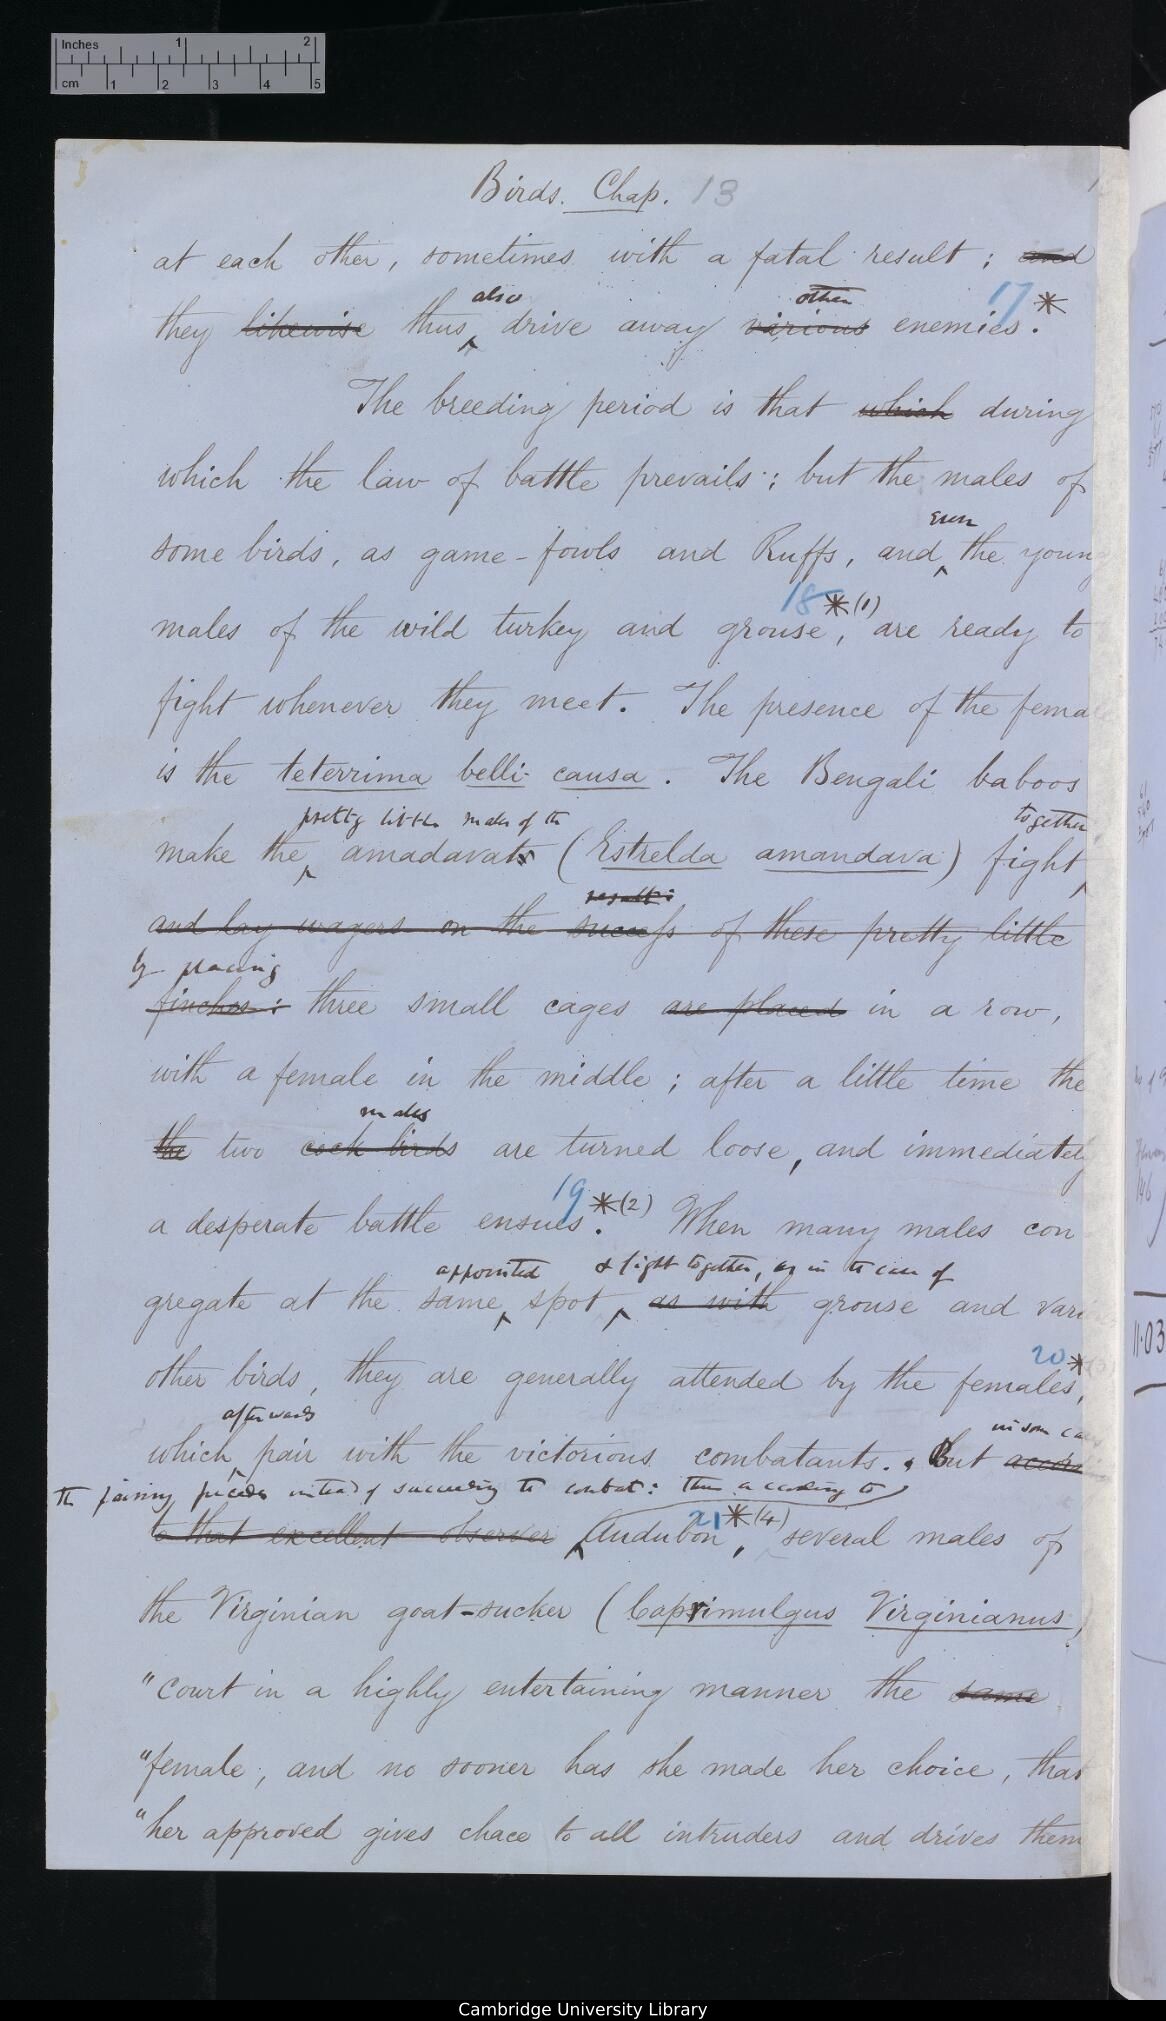 Inches 1 2
cm 1 2 3 4 5
Birds. Chap. 13
at each other, sometimes with a fatal result; and
also other 17 *
they likewise thus drive away various enemies.
The breeding period is that which during
which the law of battle prevails; but the males of
even
some birds, as game-fowls and Ruffs, and the young
18 * (1)
males of the wild turkey and grouse, are ready to
fight whenever they meet. The presence of the female
is the teterrima belli causa. The Bengali baboos
pretty little males of the together
make the amadavats (Estrelda amandava) fight
results
and lay wagers on the success of these pretty little
by placing
finches: three small cages are placed in a row,
with a female in the middle; after a little time the
males
the two cock birds are turned loose, and immediately
19 * (2)
a desperate battle ensues. When many males con
appointed & fight together, as in the case of
gregate at the same spot, as with grouse and vari
20 * (3)
other birds, they are generally attended by the females,
afterwards in some cases
which pair with the victorious combatants. But accordi
the pairing precedes instead of succeeding the combat: thus according to
21 * (4)
to that excellent observer Audubon, several males of
the Virginian goat-sucker (Caprimulgus Virginianus)
"court in a highly entertaining manner the same
"female, and no sooner has she made her choice, than
"her approved gives chace to all intruders and drives them
11.03
Cambridge University Library